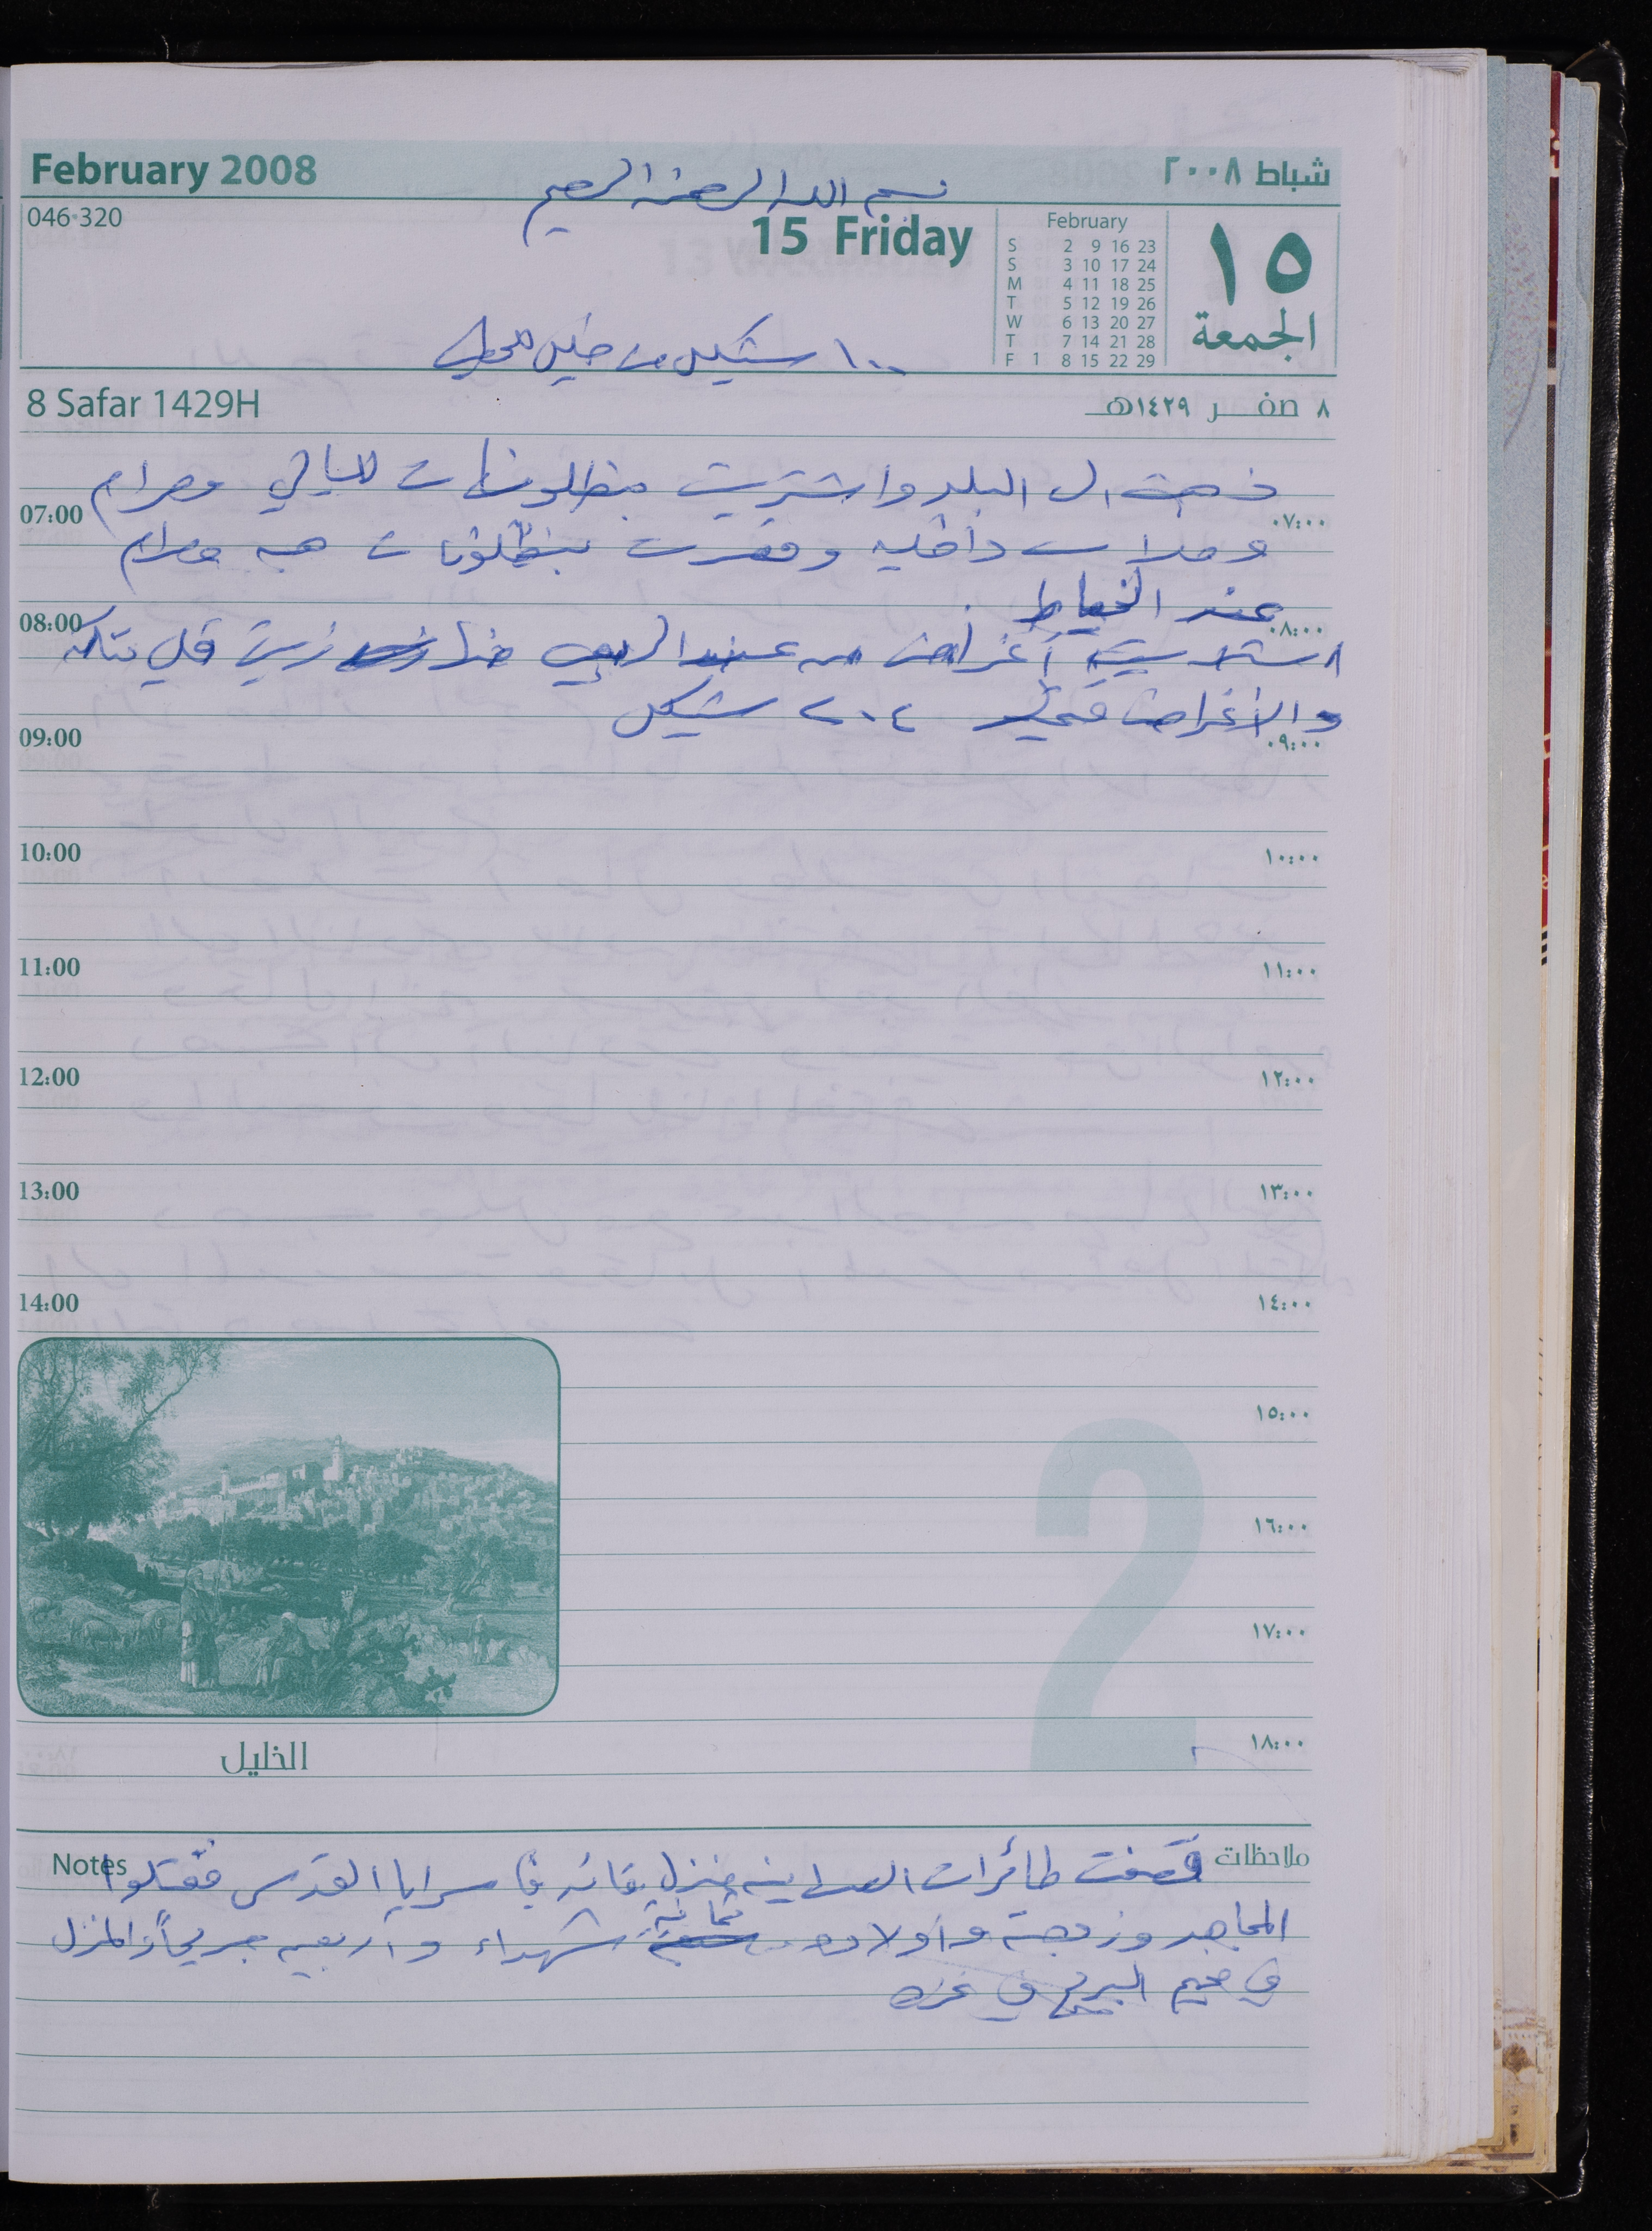 February 2008
شباط ٢٠٠٨
بسم الله الرحمن الرحيم
046-320
15 Friday
February
S 2 9 16 23
S 3 10 17 24
M 4 11 18 25
T 5 12 19 26
W 6 13 20 27
T 7 14 21 28
F 1 8 15 22 29
١٥
الجمعة
١٠٠ شيكل من خليل
8 Safar 1429H
٨ صفر ١٤٢٩هـ
ذهبت ال البلد واشتريت بنطلونات للبالي وحرام
07:00 ٠٧:٠٠
داخليه وقصرت بنطلونات
عند الخياط
08:00 ٠٨:٠٠
اشتريت أغراض من عند الربعي زيت قلي
والأغراض ٢٠٤ شيكل
09:00 ٠٩:٠٠
10:00 ١٠:٠٠
11:00 ١١:٠٠
12:00 ١٢:٠٠
13:00 ١٣:٠٠
14:00 ١٤:٠٠
١٥:٠٠
١٦:٠٠
١٧:٠٠
١٨:٠٠
2
الخليل
Notes ملاحظات
قصفت طائرات منزل سرايا القدس فقتلوا
المجاهد وزوجته وأولاده ثمانية شهداء وأربعين جريحاً والمنزل
في مخيم البريج في غزه